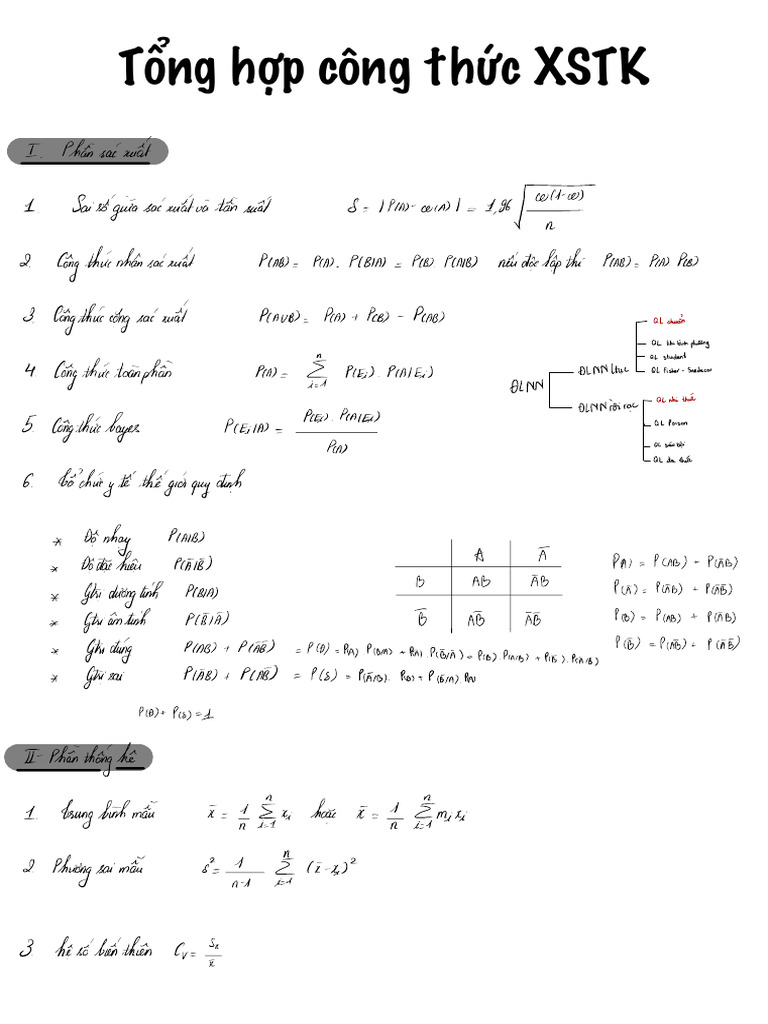 Tổng hợp công thức XSTK
I. Phần xác xuất
1. Sai số giữa xác xuất và tần xuất δ = |P(A) - ω(A)| = 1,96 √(ω(1-ω)/n)
2. Công thức nhân xác xuất P(AB) = P(A). P(B|A) = P(B) P(A|B) nếu độc lập thì P(AB) = P(A) P(B)
3. Công thức cộng xác xuất P(A∪B) = P(A) + P(B) - P(AB)
4. Công thức toàn phần P(A) = Σ_{i=1}^{n} P(Ei). P(A|Ei)
5. Công thức bayes P(Ei|A) = P(Ei). P(A|Ei) / P(A)
ĐLNN
ĐLNN ltục
QL chuẩn
QL khi bình phương
QL student
QL Fisher - Snedecor
ĐLNN rời rạc
QL nhị thức
QL Poison
QL siêu bội
QL đa thức
6. Tổ chức y tế thế giới quy định
* Độ nhạy P(A|B)
* Độ đặc hiệu P(Ā|B̄)
* Gtrị dương tính P(B|A)
* Gtrị âm tính P(B̄|Ā)
* Gtrị đúng P(AB) + P(ĀB̄) = P(Đ) = P(A) P(B/A) + P(Ā). P(B̄/Ā) = P(B). P(A/B) + P(B̄). P(Ā/B̄)
* Gtrị sai P(ĀB) + P(AB̄) = P(S) = P(Ā/B). P(B) + P(B̄/A) P(A)
P(Đ) + P(S) = 1
A Ā
B AB ĀB
B̄ AB̄ ĀB̄
P(A) = P(AB) + P(AB̄)
P(Ā) = P(ĀB) + P(ĀB̄)
P(B) = P(AB) + P(ĀB)
P(B̄) = P(AB̄) + P(ĀB̄)
II - Phần thống kê
1. Trung bình mẫu x̄ = 1/n Σ_{i=1}^{n} xi hoặc x̄ = 1/n Σ_{i=1}^{n} mi xi
2. Phương sai mẫu s² = 1/(n-1) Σ_{i=1}^{n} (x̄ - xi)²
3. hệ số biến thiên Cv = Sx/x̄